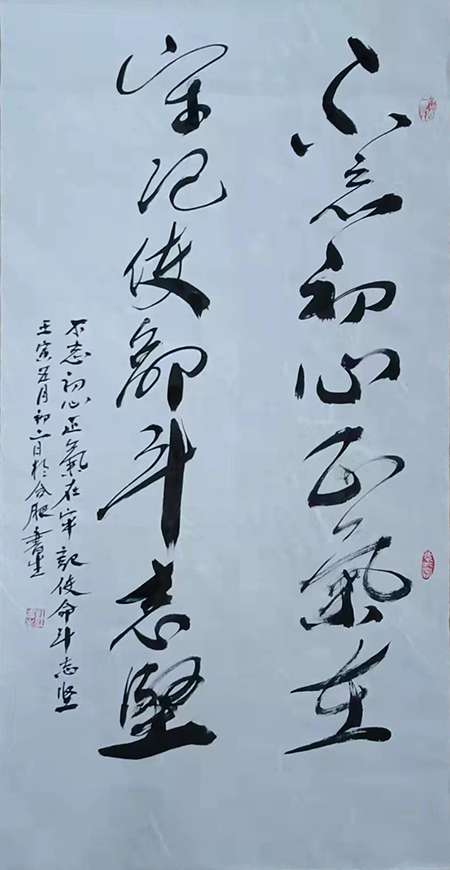 不忘初心正氣在
牢记使命斗志堅
不忘初心正氣在牢記使命斗志坚
壬寅五月初二日於合肥書生